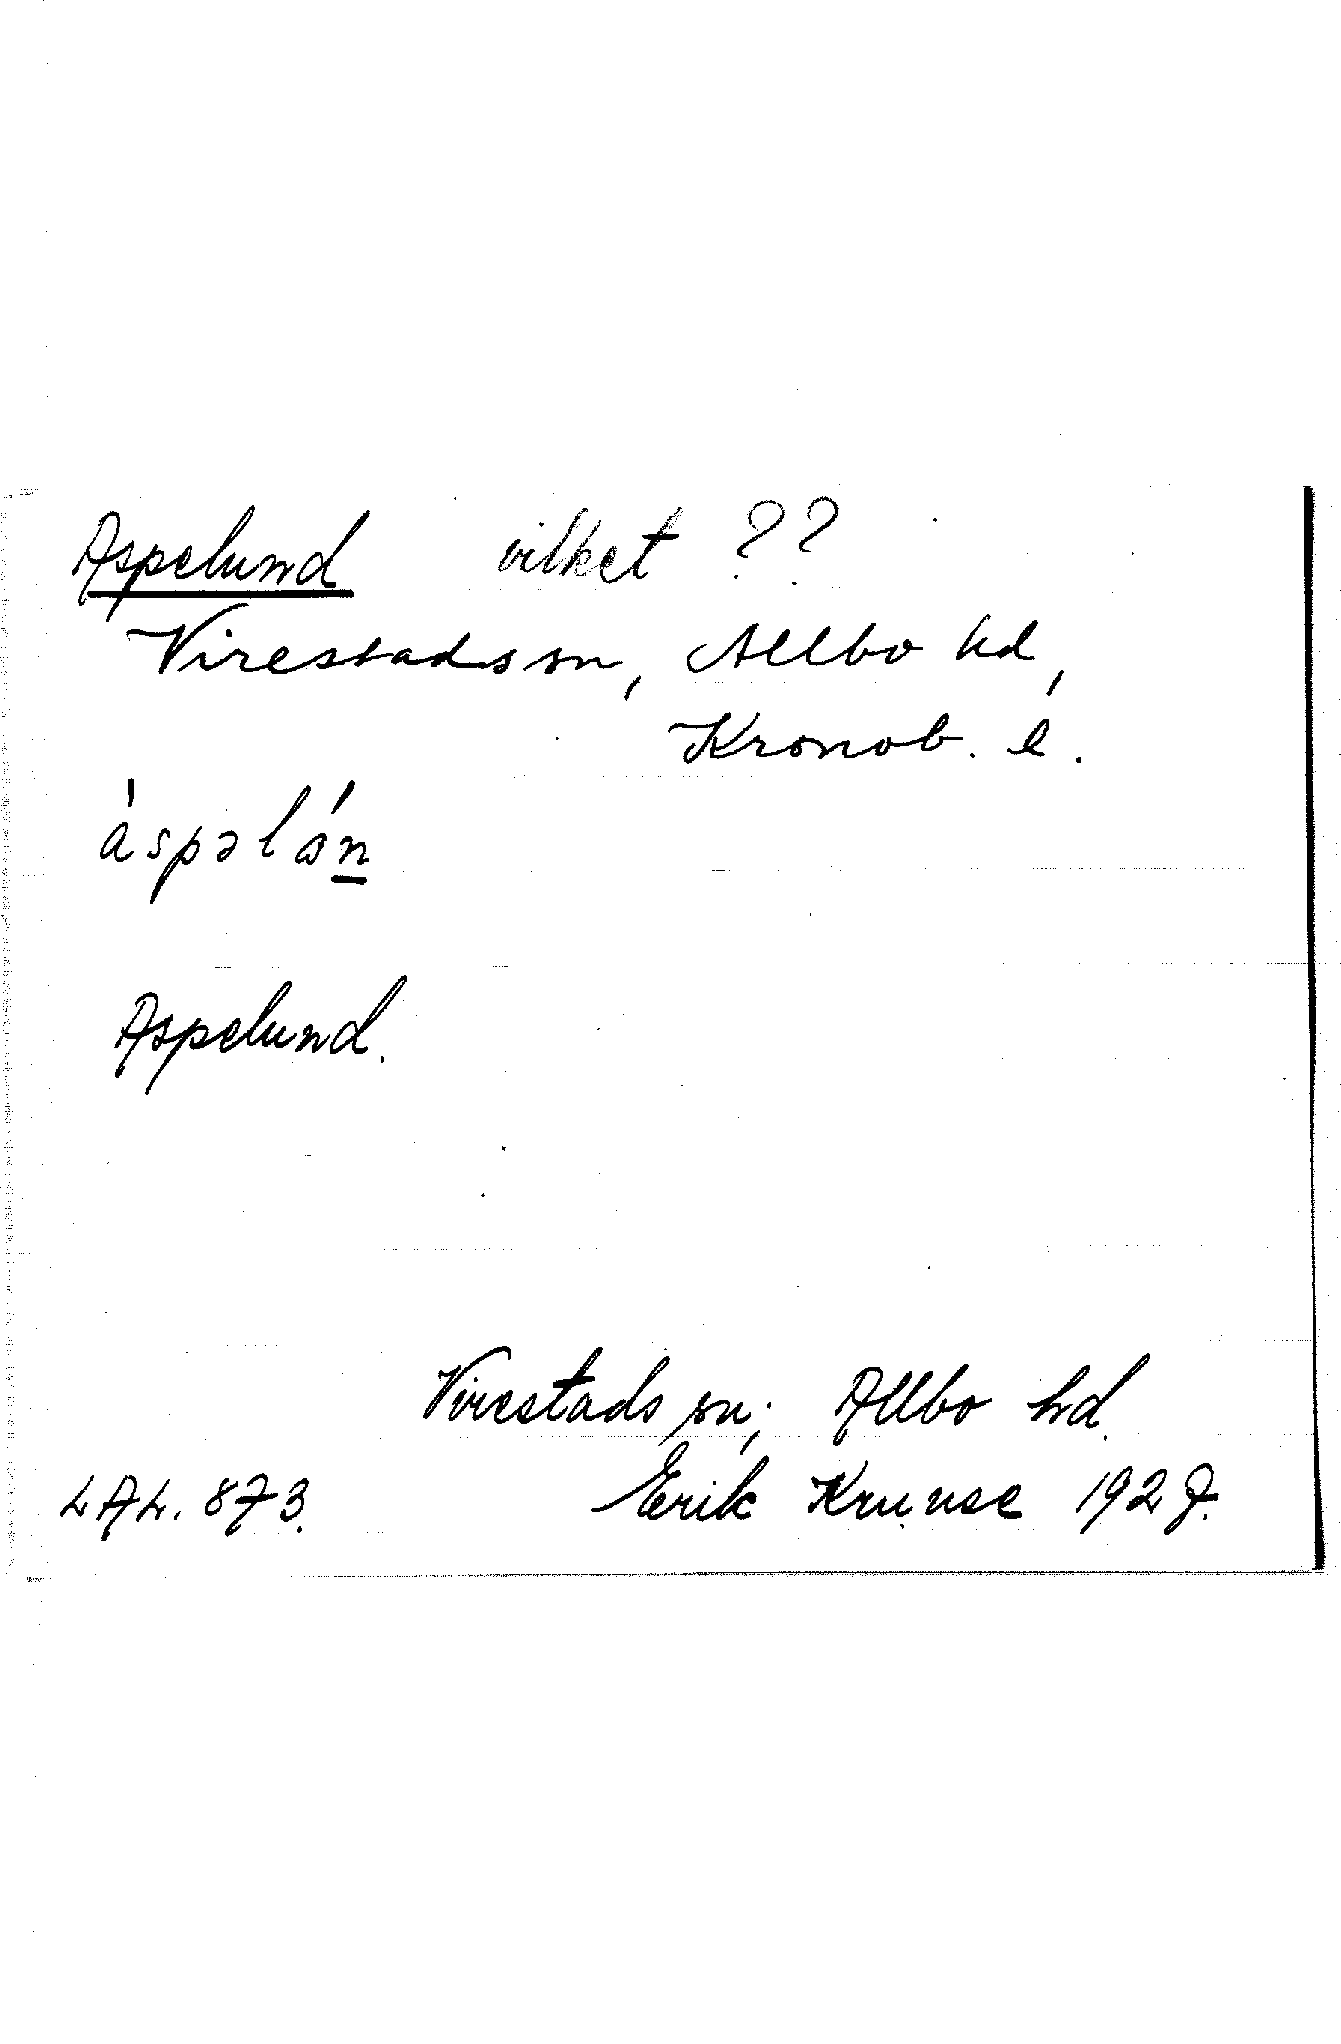 Aspelund vilket ??
Virestads sn, Allbo hd,
Kronob. l.
áspəlán
Aspelund.
Virestads sn, Allbo hd.
LAL. 873. Erik Kruuse 1927.